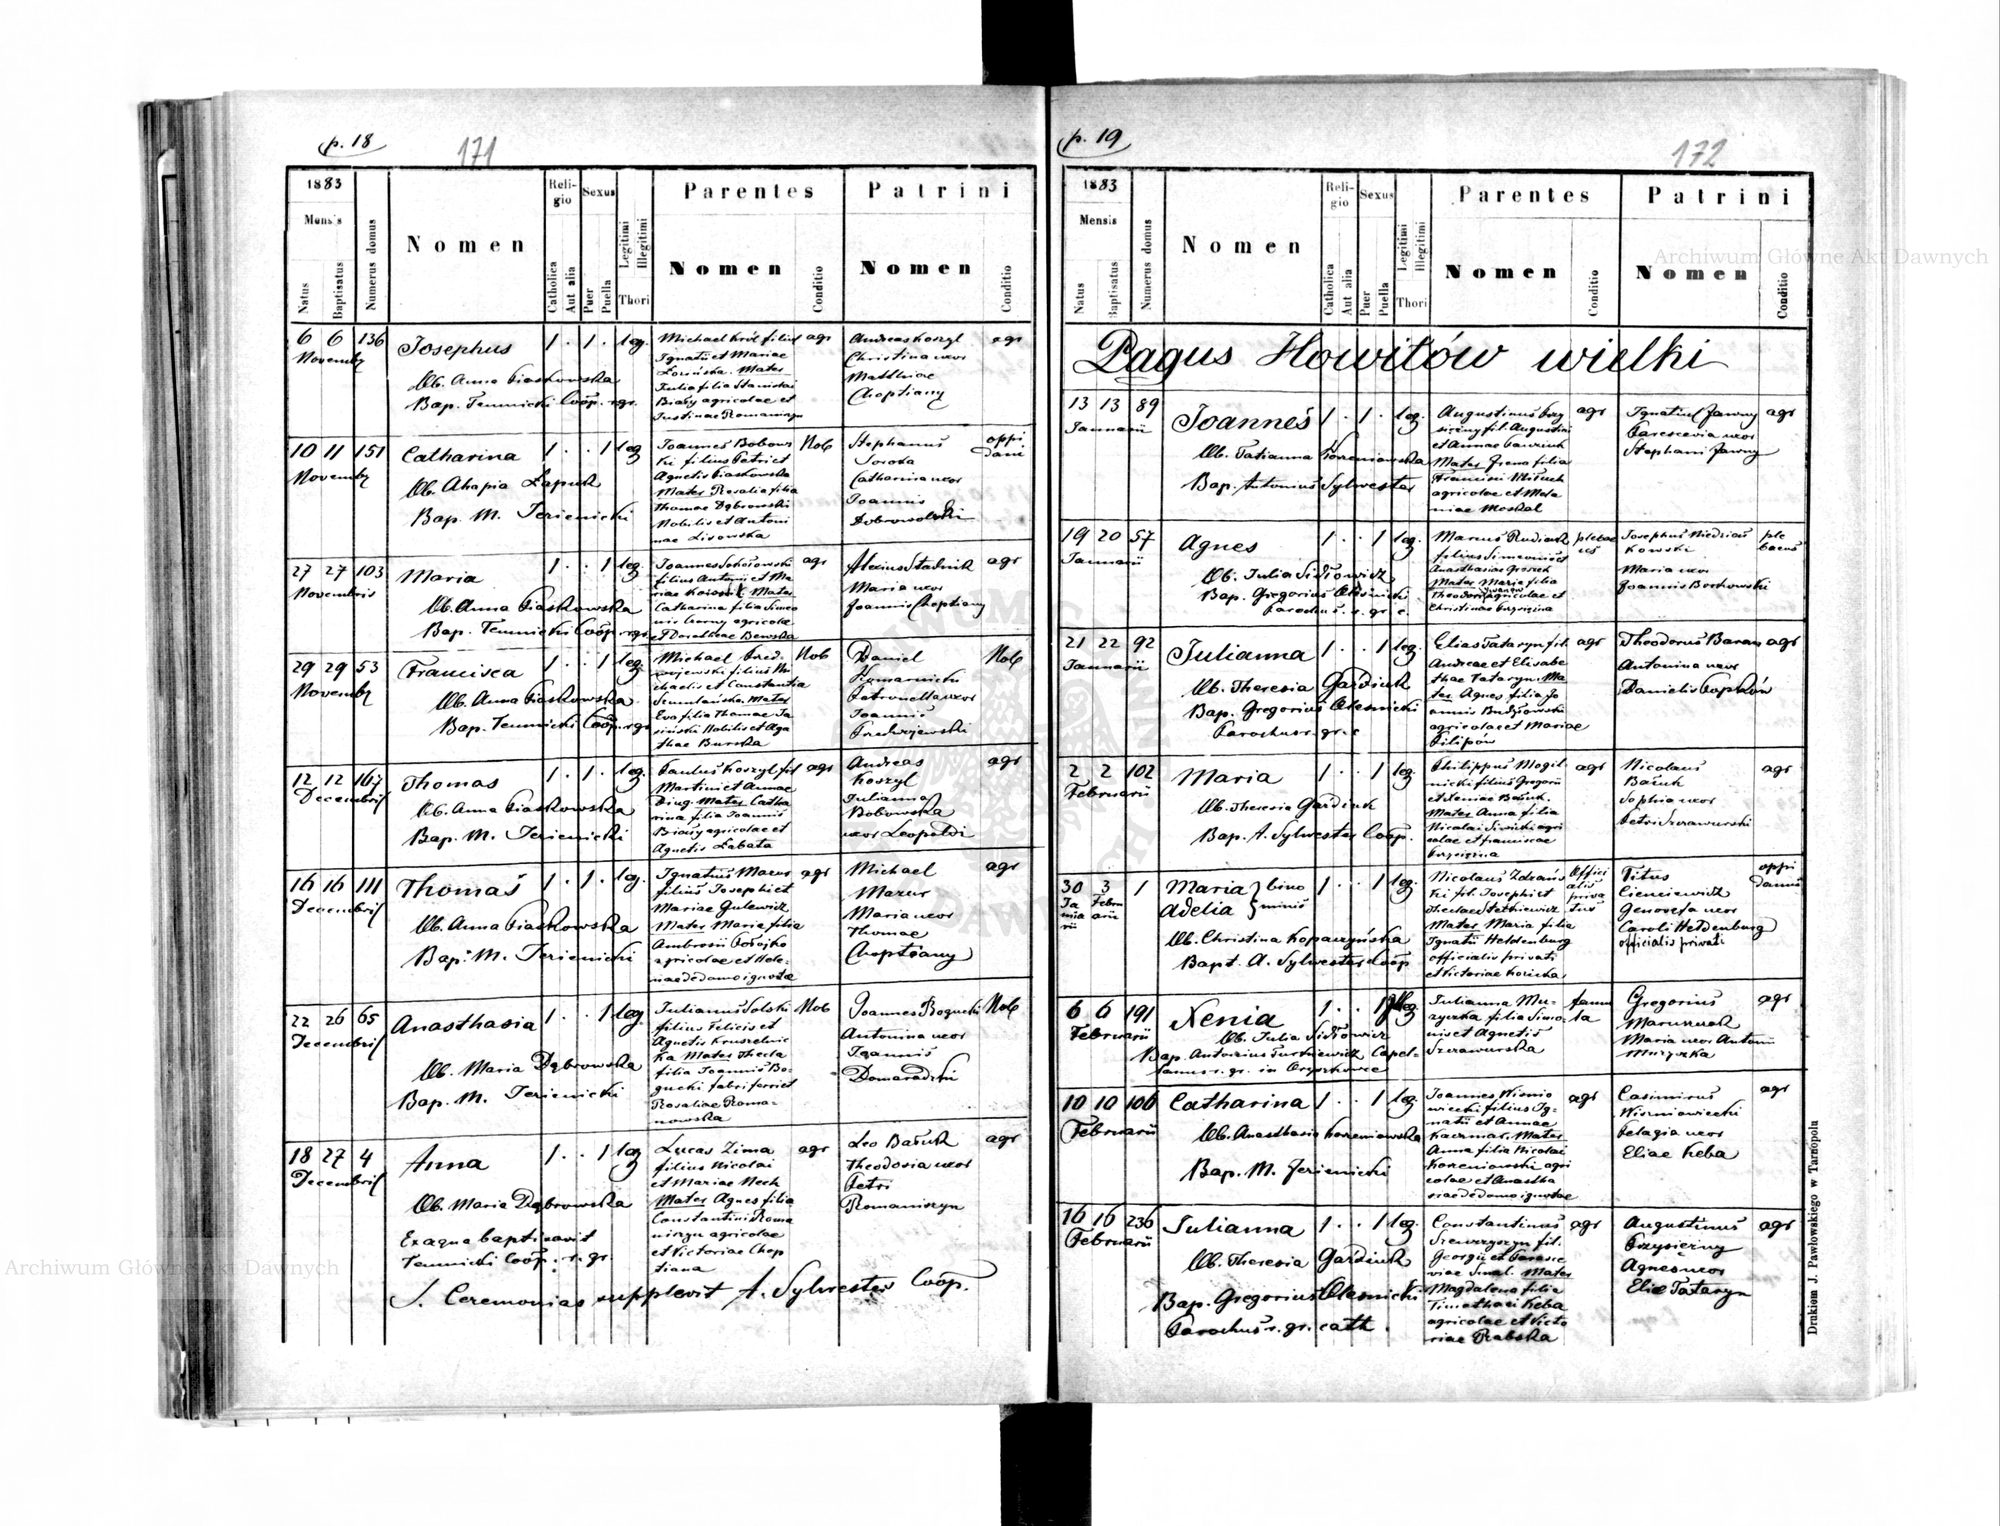 p. 18
171
1883
Mensis
Natus
Baptisatus
Numerus domus
Nomen
Religio
Catholica
Aut alia
Sexus
Puer
Puella
Legitimi
Illegitimi
Thori
Parentes
Nomen
Conditio
Patrini
Nomen
Conditio
6 6 136
Novemb
Josephus
Ob. Anna Piaskowska
Bap. Temnicki Coop. r.gr.
1 . 1 . leg.
Michael Król filius
Ignatii et Mariae
Mater
Julia filia Stanislai
Biały agricolae et
Justinae Romaniszyn
agr
Andreas Koszyl
Christina uxor
Matthiae
Choptiany
agr
10 11 151
Novemb
Catharina
Ob. Ahapia Łapuk
Bap. M. Jerienicki
1 . . 1 leg
Joannes Bobows
ki filius Petri et
Agnetis Piaskowska
Mater Rosalia filia
Thomae Dąbrowski
Nobilis et Antoni
nae Lisowska
Nob
Stephanus
Soroka
Catharina uxor
Joannis
Dobrowolski
oppi
dani
27 27 103
Novembris
Maria
Ob. Anna Piaskowska
Bap. Temnicki Coop. r.gr.
1 . . 1 leg
Joannes Sokołowski
filius Antonii et Ma
riae Mater
Catharina filia Simeo
nis Czarny agricolae
et Dorotheae Bewska
agr
Alexius Stadnik
Maria uxor
Joannis Choptiany
agr
29 29 53
Novemb
Francisca
Ob. Anna Piaskowska
Bap. Temnicki Coop. r.gr
1 . . 1 leg.
Michael Fred-
rojewski filius Mi
chaelis et Constantia
Szumlańska. Mater
Eva filia Thomae Ja
siński Nobilis et Aga
thae Burska
Nob
Daniel
Komarnicki
Petronella uxor
Joannis
Fredrojewski
Nob
12 12 167
Decembris
Thomas
Ob. Anna Piaskowska
Bap. M. Jerienicki
1 . 1 . leg.
Paulus Koszyl fil
Martini et Annae
Mater Catha
rina filia Joannis
Biały agricolae et
Agnetis Łabata
agr
Andreas
Koszyl
Julianna
Bobowska
uxor Leopoldi
agr
16 16 111
Decembris
Thomas
Ob. Anna Piaskowska
Bap. M. Jerienicki
1 . 1 . leg.
Ignatius Mazur
filius Josephi et
Mariae Gulewicz
Mater Maria filia
Ambrosii Połojko
agricolae et Hele-
nae de domo ignotae
agr
Michael
Mazur
Maria uxor
Thomae
Choptiany
agr
22 26 65
Decembris
Anasthasia
Ob. Maria Dąbrowska
Bap. M. Jerienicki
1 . . 1 leg
Julianus Solski
filius Felicis et
Agnetis Kruszelnic
ka Mater Thecla
filia Joannis Bo-
gucki fabri ferrei et
Rosaliae Roma-
nowska
Nob
Joannes Bogucki
Antonina uxor
Joannis
Domaradzki
Nob
18 27 4
Decembris
Anna
Ob. Maria Dąbrowska
Ex aqua baptisavit
Temnicki Coop. r. gr
S. Ceremonias supplevit A. Sylwester Coop.
1 . . 1 leg
Lucas Zima
filius Nicolai
et Mariae Mech
Mater Agnes filia
Constantini Roma
niszyn agricolae
et Victoriae Chop
tiana
agr
Leo Baśuk
Theodosia uxor
Petri
Romaniszyn
agr
p. 19
172
1883
Mensis
Natus
Baptisatus
Numerus domus
Nomen
Religio
Catholica
Aut alia
Sexus
Puer
Puella
Legitimi
Illegitimi
Thori
Parentes
Nomen
Conditio
Patrini
Nomen
Conditio
Pagus Howiłów wielki
13 13 89
Januarii
Joannes
Ob. Tatianna Korzeniowska
Bap. Antonius Sylwester
1 . 1 . leg.
Augustinus Przy
siężny fil. Augustini
et Annae Pawziuk
Mater Irena filia
Francisci
agricolae et Mela
niae Moskal
agr
Ignatius Jawny
Parascevia uxor
Stephani Jawny
agr
19 20 57
Januarii
Agnes
Ob. Julia Sidłowicz
Bap. Gregorius Oleśnicki
Parochus. r. gr. c.
1 . . 1 leg.
Marcus Rudiak
filius Simeonis et
Anasthasiae Groszek
Mater Maria filia
Theodori Iwanow agricolae et
Christinae
plebae
us
Josephus Niedziaś
kowski
Maria uxor
Joannis Borkowski
ple
baeus
21 22 92
Januarii
Julianna
Ob. Theresia Gardziuk
Bap. Gregorius Olesnicki
Parochus r. gr. c
1 . . 1 leg.
Elias Tataryn fil
Andreae et Elisabe
thae Tataryn. Ma
ter Agnes filia Jo
annis Budziowski
agricolae et Mariae
Filipów
agr
Theodorus Baran
Antonina uxor
Danielis Czopków
agr
2 2 102
Februarii
Maria
Ob. Theresia Gardziuk
Bap. A. Sylwester Coop.
1 . . 1 leg.
Philippus Mogil
nicki filius Gregorii
et Xeniae Baśuk.
Mater Anna filia
Nicolai Siwicki agri
colae et Franciscae
agr
Nicolaus
Baśuk
Sophia uxor
Petri Szurawurski
agr
30 3 1
Ja
nua
rii
Febru
arii
Maria } bino
Adelia } minis
Ob. Christina Kopaczyńska
Bapt. A. Sylwester Coop
1 . . 1 leg
Nicolaus Zdrańs
ki fil. Josephi et
Theclae Petkiewicz
Mater Maria filia
Ignatii Heldenburg
officialis privati
et Victoriae Koricka
Offici
alis
priva
tus
Titus
Cieńciewicz
Genovefa uxor
Caroli Heldenburg
officialis privati
oppi
danus
6 6 191
Februarii
Xenia
Ob. Julia Sidłowicz
Bap. Antonius Turkiewicz Capel-
lanus r. gr. in Oryszkowce
1 . . 1
Julianna Mu-
zyczka filia Simo-
nis et Agnetis
Szurawurska
famu
la
Gregorius
Marusczak
Maria uxor Antonii
Muzyczka
agr
10 10 106
Februarii
Catharina
Ob. Anasthasia Korzeniowska
Bap. M. Jerienicki
1 . . 1 leg.
Joannes Wisnio
wiecki filius Ig-
natii et Annae
Kaczmar. Mater
Anna filia Nicolai
Korzeniowski agri
colae et Anastha
siae de domo ignotae
agr
Casimirus
Wiszniowiecki
Pelagia uxor
Eliae Keba
agr
16 16 236
Februarii
Julianna
Ob. Theresia Gardziuk
Bap. Gregorius Olesnicki
Parochus r. gr. cath.
1 . . 1 leg.
Constantinus
Szewczyszyn fil.
Georgii et Parasce
viae Smal. Mater
Magdalena filia
Timothaei Keba
agricolae et Victo
riae Rabska
agr
Augustinus
Przysiężny
Agnes uxor
Eliae Tataryn
agr
Drukiem J. Pawłowskiego w Tarnopolu
Archiwum Główne Akt Dawnych
Archiwum Główne Akt Dawnych